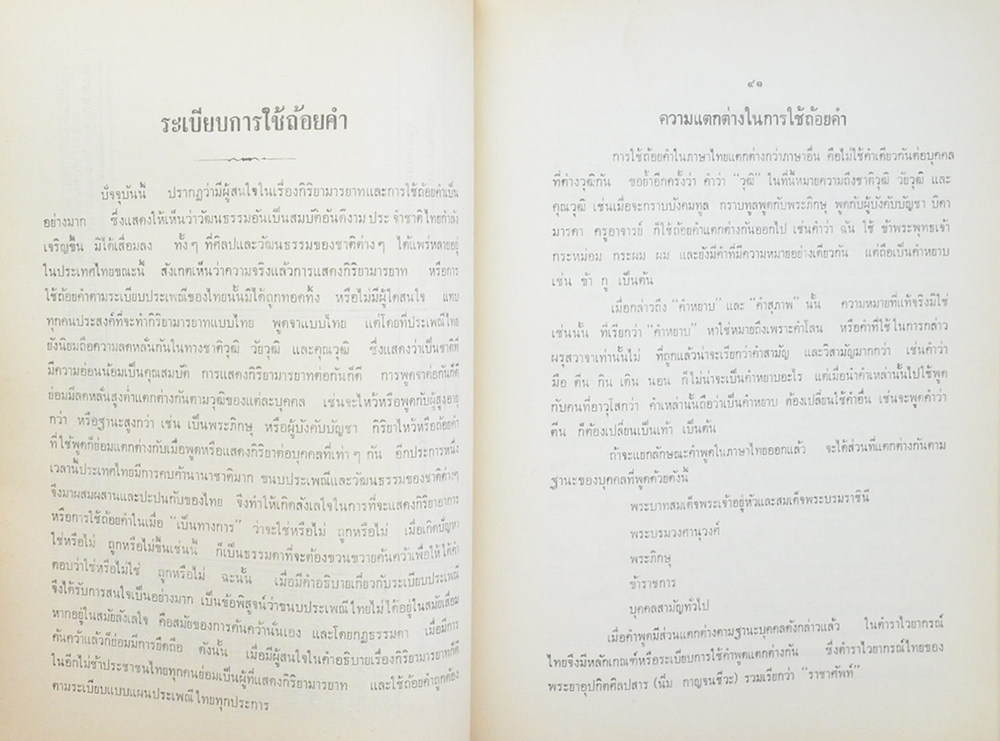 ระเบียบการใช้ถ้อยคำ
ปัจจุบันนี้ ปรากฏว่ามีผู้สนใจในเรื่องกิริยามารยาทและการใช้ถ้อยคำเป็น
อย่างมาก ซึ่งแสดงให้เห็นว่าวัฒนธรรมอันเป็นสมบัติอันดีงามประจำชาติไทยกำลัง
เจริญขึ้น มิได้เสื่อมลง ทั้งๆ ที่ศิลปและวัฒนธรรมของชาติต่างๆ ได้แพร่หลายอยู่
ในประเทศไทยขณะนี้ สังเกตเห็นว่าความจริงแล้วการแสดงกิริยามารยาท หรือการ
ใช้ถ้อยคำตามระเบียบประเพณีของไทยนั้นมิได้ถูกทอดทิ้ง หรือไม่มีผู้ใดสนใจ แทบ
ทุกคนประสงค์ที่จะทำกิริยามารยาทแบบไทย พูดจาแบบไทย แต่โดยที่ประเพณีไทย
ยังนิยมถือความลดหลั่นกันในทางชาติวุฒิ วัยวุฒิ และคุณวุฒิ ซึ่งแสดงว่าเป็นชาติที่
มีความอ่อนน้อมเป็นคุณสมบัติ การแสดงกิริยามารยาทต่อกันก็ดี การพูดจาต่อกันก็ดี
ย่อมมีลดหลั่นสูงต่ำแตกต่างกันตามวุฒิของแต่ละบุคคล เช่นจะไหว้หรือพูดกับผู้สูงอายุ
กว่า หรือฐานะสูงกว่า เช่น เป็นพระภิกษุ หรือผู้บังคับบัญชา กิริยาไหว้หรือถ้อยคำ
ที่ใช้พูดก็ย่อมแตกต่างกับเมื่อพูดหรือแสดงกิริยาต่อบุคคลที่เท่าๆ กัน อีกประการหนึ่ง
เวลานี้ประเทศไทยมีการคบค้านานาชาติมาก ขนบประเพณีและวัฒนธรรมของชาติต่างๆ
จึงมาผสมผสานและปะปนกับของไทย จึงทำให้เกิดสงสัยในการที่จะแสดงกิริยาอาการ
หรือการใช้ถ้อยคำในเมื่อ "เป็นทางการ" ว่าจะใช่หรือไม่ ถูกหรือไม่ เมื่อเกิดปัญหา
ใช่หรือไม่ ถูกหรือไม่ขึ้นเช่นนี้ ก็เป็นธรรมดาที่จะต้องขวนขวายค้นคว้าเพื่อให้ได้คำ
ตอบว่าใช่หรือไม่ใช่ ถูกหรือไม่ ฉะนั้น เมื่อมีคำอธิบายเกี่ยวกับระเบียบประเพณี
จึงได้รับการสนใจเป็นอย่างมาก เป็นข้อพิสูจน์ว่าขนบประเพณีไทยไม่ได้อยู่ในสมัยเสื่อม
หากอยู่ในสมัยลังเลใจ คือสมัยของการค้นคว้านั่นเอง และโดยกฎธรรมดา เมื่อมีการ
ค้นคว้าแล้วก็ย่อมมีการยึดถือ ดังนั้น เมื่อมีผู้สนใจในคำอธิบายเรื่องกิริยามารยาทก็ดี
ในอีกไม่ช้าประชาชนไทยทุกคนย่อมเป็นผู้ที่แสดงกิริยามารยาท และใช้ถ้อยคำถูกต้อง
ตามระเบียบแบบแผนประเพณีไทยทุกประการ
๔๑
ความแตกต่างในการใช้ถ้อยคำ
การใช้ถ้อยคำในภาษาไทยแตกต่างกว่าภาษาอื่น คือไม่ใช้คำเดียวกันต่อบุคคล
ที่ต่างวุฒิกัน ขอย้ำอีกครั้งว่า คำว่า "วุฒิ" ในที่นี้หมายความถึงชาติวุฒิ วัยวุฒิ และ
คุณวุฒิ เช่นเมื่อจะกราบบังคมทูล กราบทูลพูดกับพระภิกษุ พูดกับผู้บังคับบัญชา บิดา
มารดา ครูอาจารย์ ก็ใช้ถ้อยคำแตกต่างกันออกไป เช่นคำว่า ฉัน ใช้ ข้าพระพุทธเจ้า
กระหม่อม กระผม ผม และยังมีคำที่มีความหมายอย่างเดียวกัน แต่ถือเป็นคำหยาบ
เช่น ข้า กู เป็นต้น
เมื่อกล่าวถึง "คำหยาบ" และ "คำสุภาพ" นั้น ความหมายที่แท้จริงมิใช่
เช่นนั้น ที่เรียกว่า "คำหยาบ" หาใช่หมายถึงเพราะคำโลน หรือคำที่ใช้ในการกล่าว
ผรุสวาจาเท่านั้นไม่ ที่ถูกแล้วน่าจะเรียกว่าคำสามัญ และวิสามัญมากกว่า เช่นคำว่า
มือ ตีน กิน เดิน นอน ก็ไม่น่าจะเป็นคำหยาบอะไร แต่เมื่อนำคำเหล่านั้นไปใช้พูด
กับคนที่อาวุโสกว่า คำเหล่านั้นถือว่าเป็นคำหยาบ ต้องเปลี่ยนใช้คำอื่น เช่นจะพูดคำว่า
ตีน ก็ต้องเปลี่ยนเป็นเท้า เป็นต้น
ถ้าจะแยกลักษณะคำพูดในภาษาไทยออกแล้ว จะได้ส่วนที่แตกต่างกันตาม
ฐานะของบุคคลที่พูดด้วยดังนี้
พระบาทสมเด็จพระเจ้าอยู่หัวและสมเด็จพระบรมราชินี
พระบรมวงศานุวงศ์
พระภิกษุ
ข้าราชการ
บุคคลสามัญทั่วไป
เมื่อคำพูดมีส่วนแตกต่างตามฐานะบุคคลดังกล่าวแล้ว ในตำราไวยากรณ์
ไทยจึงมีหลักเกณฑ์หรือระเบียบการใช้คำพูดแตกต่างกัน ซึ่งตำราไวยากรณ์ไทยของ
พระยาอุปกิตศิลปสาร (นิ่ม กาญจนชีวะ) รวมเรียกว่า "ราชาศัพท์"